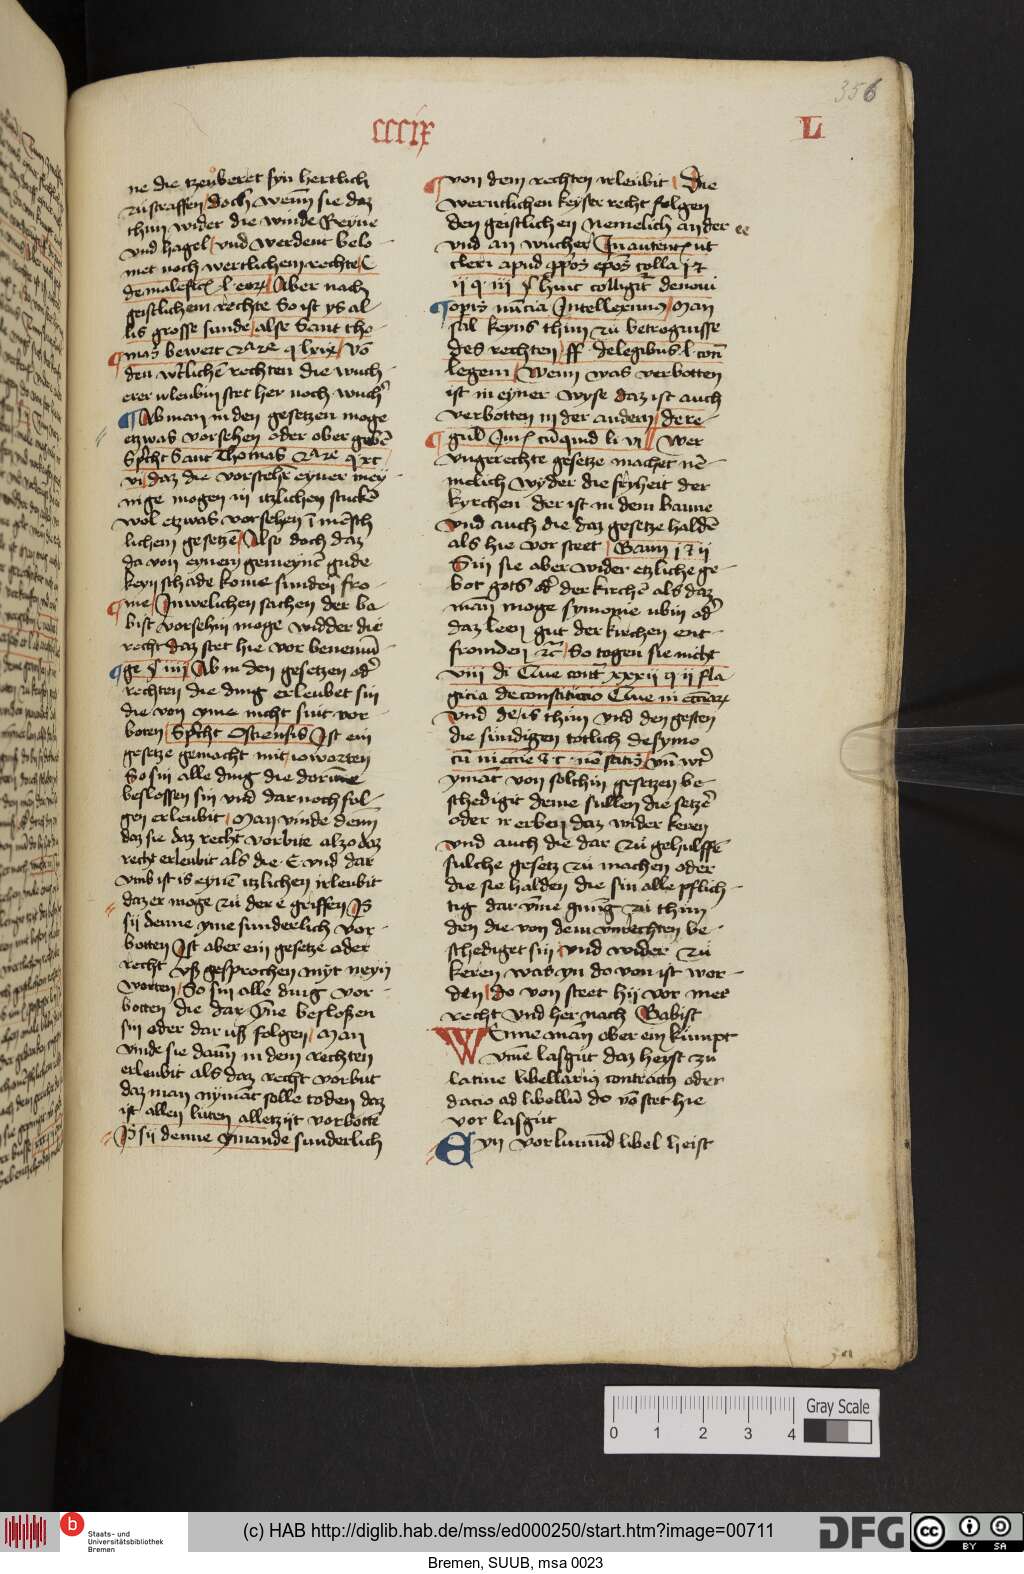 356
cccix
L
ne die tzeuberer syn hertlich
zu straffen / doch wenn sie daz
thun wider die winde Reyne
vnd hagel / vnd werdent belo-
met noch wertlichem rechte / C
de malefic l eorz / Aber nach
geistlichem rechte So ist ys al-
lis grosse sunde / alse Sant tho-
mas bewert q lxix / vo
den wtliche rechten die wuch
erer irleubin stet her noch wuch
Ab man in den gesetzen moge
etzwas vorsehen oder ober geben
Spricht Sant Thomas q xc
vi / daz die vorstehe eyner mey
nige mogen in itzlichen stucke
wol etzwas vorsehen i mesch
lichem gesetze / Also doch daz
da von eynem gemeyne gude
keyn schade kome sunden fro-
me / In welichen sachen der ba
bist vorsehin moge widder die
recht daz stet hie vor benemu
ge / Ab in den gesetzen od
rechten die ding erleubet sin
die von yme nicht sint vor
boten / Spricht Ostiensis Ist ein
gesetze gemacht mit io worten
So sin alle ding die dorinne
beslossen sin vnd dar noch fol-
gen erleubit / Man vinde denn
daz sie daz recht vorbite alzo daz
recht erleubit als die E vnd dar
vmb ist is eyne itzlichen irleubit
daz er moge zu der e griffen Is
sy denne yme sunderlich vor-
botten Ist aber ein gesetze oder
recht vß gesprochen myt neyn
worten / So sin alle ding vor-
botten die dar yne besloßen
sin oder dar uß folgen / Man
vinde sie dann in dem rechten
erleubit als daz recht vorbut
daz man nymat solle toden daz
ist allen luten alletzijt vorbotte
Is sy denne ymande sunderlich
von dem rechten irleubit / Die
werntlichen keyser recht folgen
den geistlichen Nemelich an der ee
vnd an wucher In autent ut
cleri apud
ii q iii
Intelleximus / Man
sal keyns thun zu betrognisse
des rechten / ff de legibus l cont
legem / Wenn was verbotten
ist in eyner wyse daz ist auch
verbotten in der andern / de re-
gul Wer
vngerechte gesetze machet ne
melich wyder die friheit der
kyrchen der ist in dem banne
vnd auch die daz gesetze halde
als hie vor steet / Bann
Sin sie aber wider etzliche ge-
bot gots od der kirche als daz
man moge symonie ubin od
daz leen gut der kirchen ent-
fromden So togen sie nicht
viii di Que contra xxxii q ii fla
gicia de constitucio Que in
vnd de is thun vnd den gesten
die sundigen totlich de symo
ymat von solchin gesetzen be-
schedigit deme sullen die setze
oder ir erben daz wider keren
vnd auch die dar zu gehulffe
sulche gesetz zu machen oder
die sie halden die sin alle pflich-
tig dar vme gnug zu thun
den die von dem vnrechten be-
schediget sin vnd wider zu
keren was yn do von ist wor-
den / do von steet hij vor mer
recht vnd her nach Babist
Wenne man ober ein kumpt
vme lasgut daz heyst zu
latine libellarius contractus oder
dacio ad libellu do vo stet hie
vor lasgut
Eyn vorlumund libel heist
0 1 2 3 4
Gray Scale
b
Staats- und
Universitätsbibliothek
Bremen
(c) HAB http://diglib.hab.de/mss/ed000250/start.htm?image=00711
DFG
cc BY SA
Bremen, SUUB, msa 0023